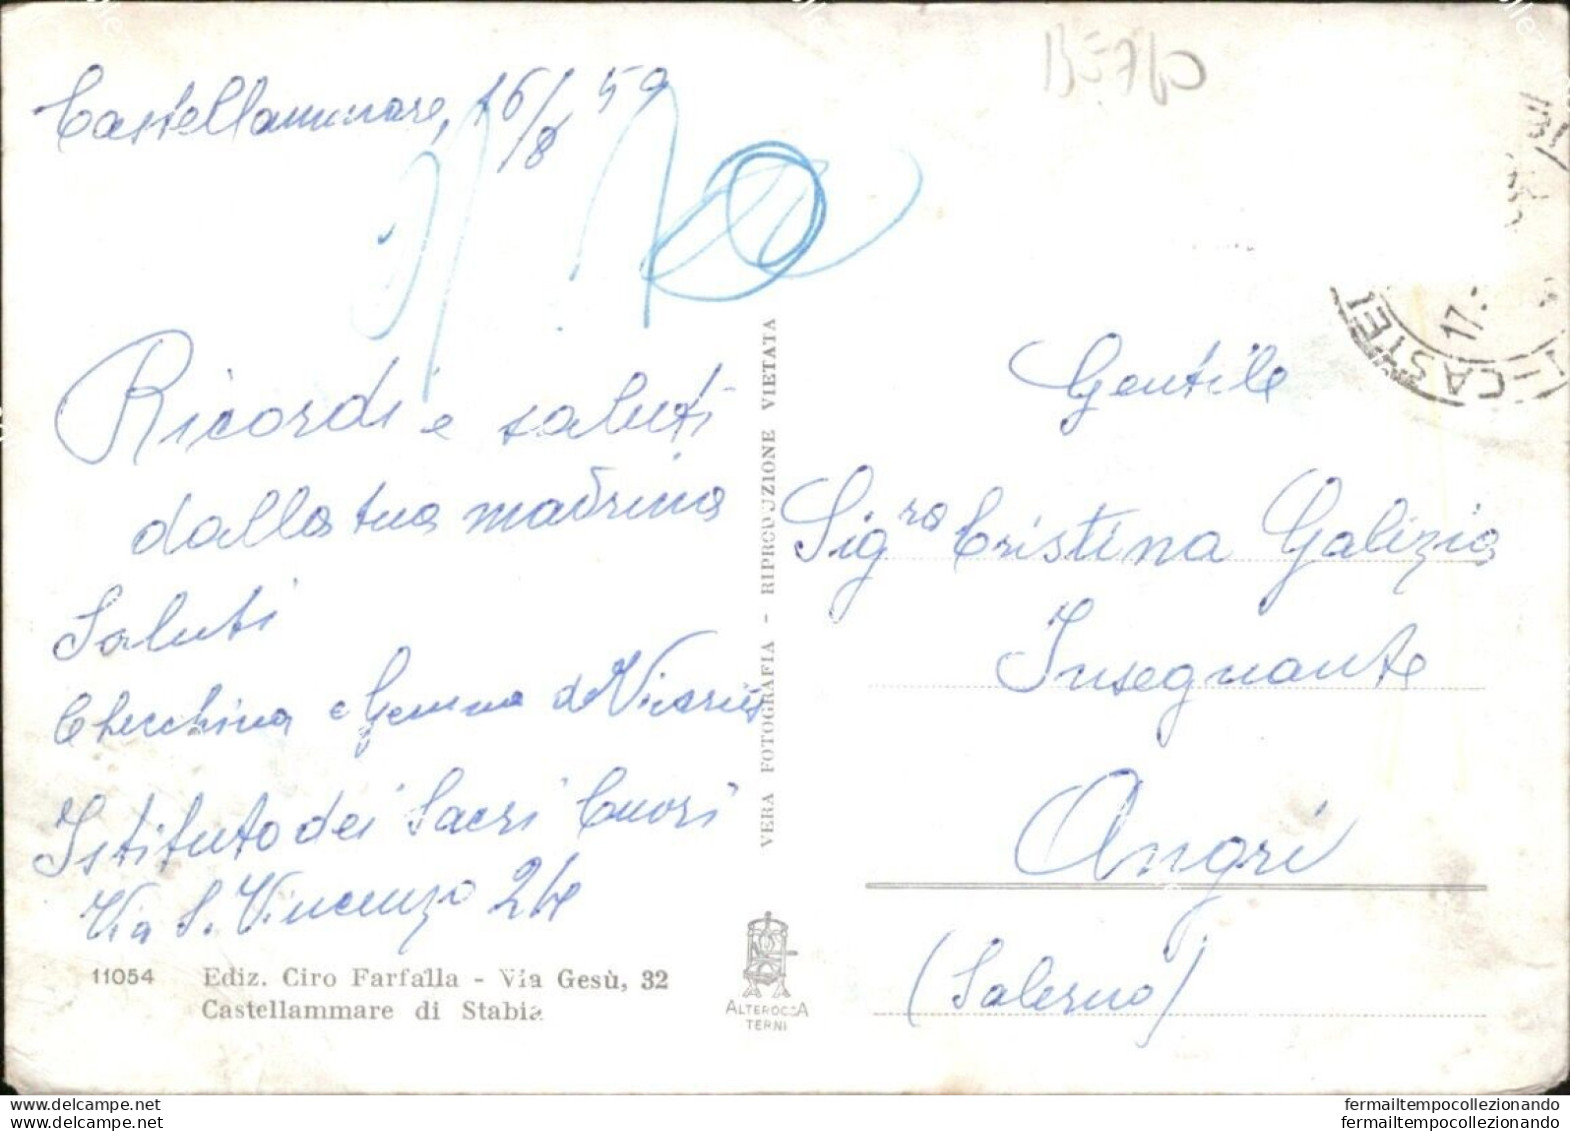 Castellammare, 16/8 59
BE760
Ricordi e saluti
dalla tua madrina
Saluti
Checchina e Gemma de Vicariis
Istituto dei Sacri Cuori
Via S. Vincenzo 24
11054 Ediz. Ciro Farfalla - Via Gesù, 32
Castellammare di Stabia
VERA FOTOGRAFIA - RIPRODUZIONE VIETATA
ALTEROCCA
TERNI
CASTEL
17.
Gentile
Sig.ra Cristina Galizia
Insegnante
Angri
(Salerno)
www.delcampe.net
fermailtempocollezionando
www.delcampe.net
fermailtempocollezionando